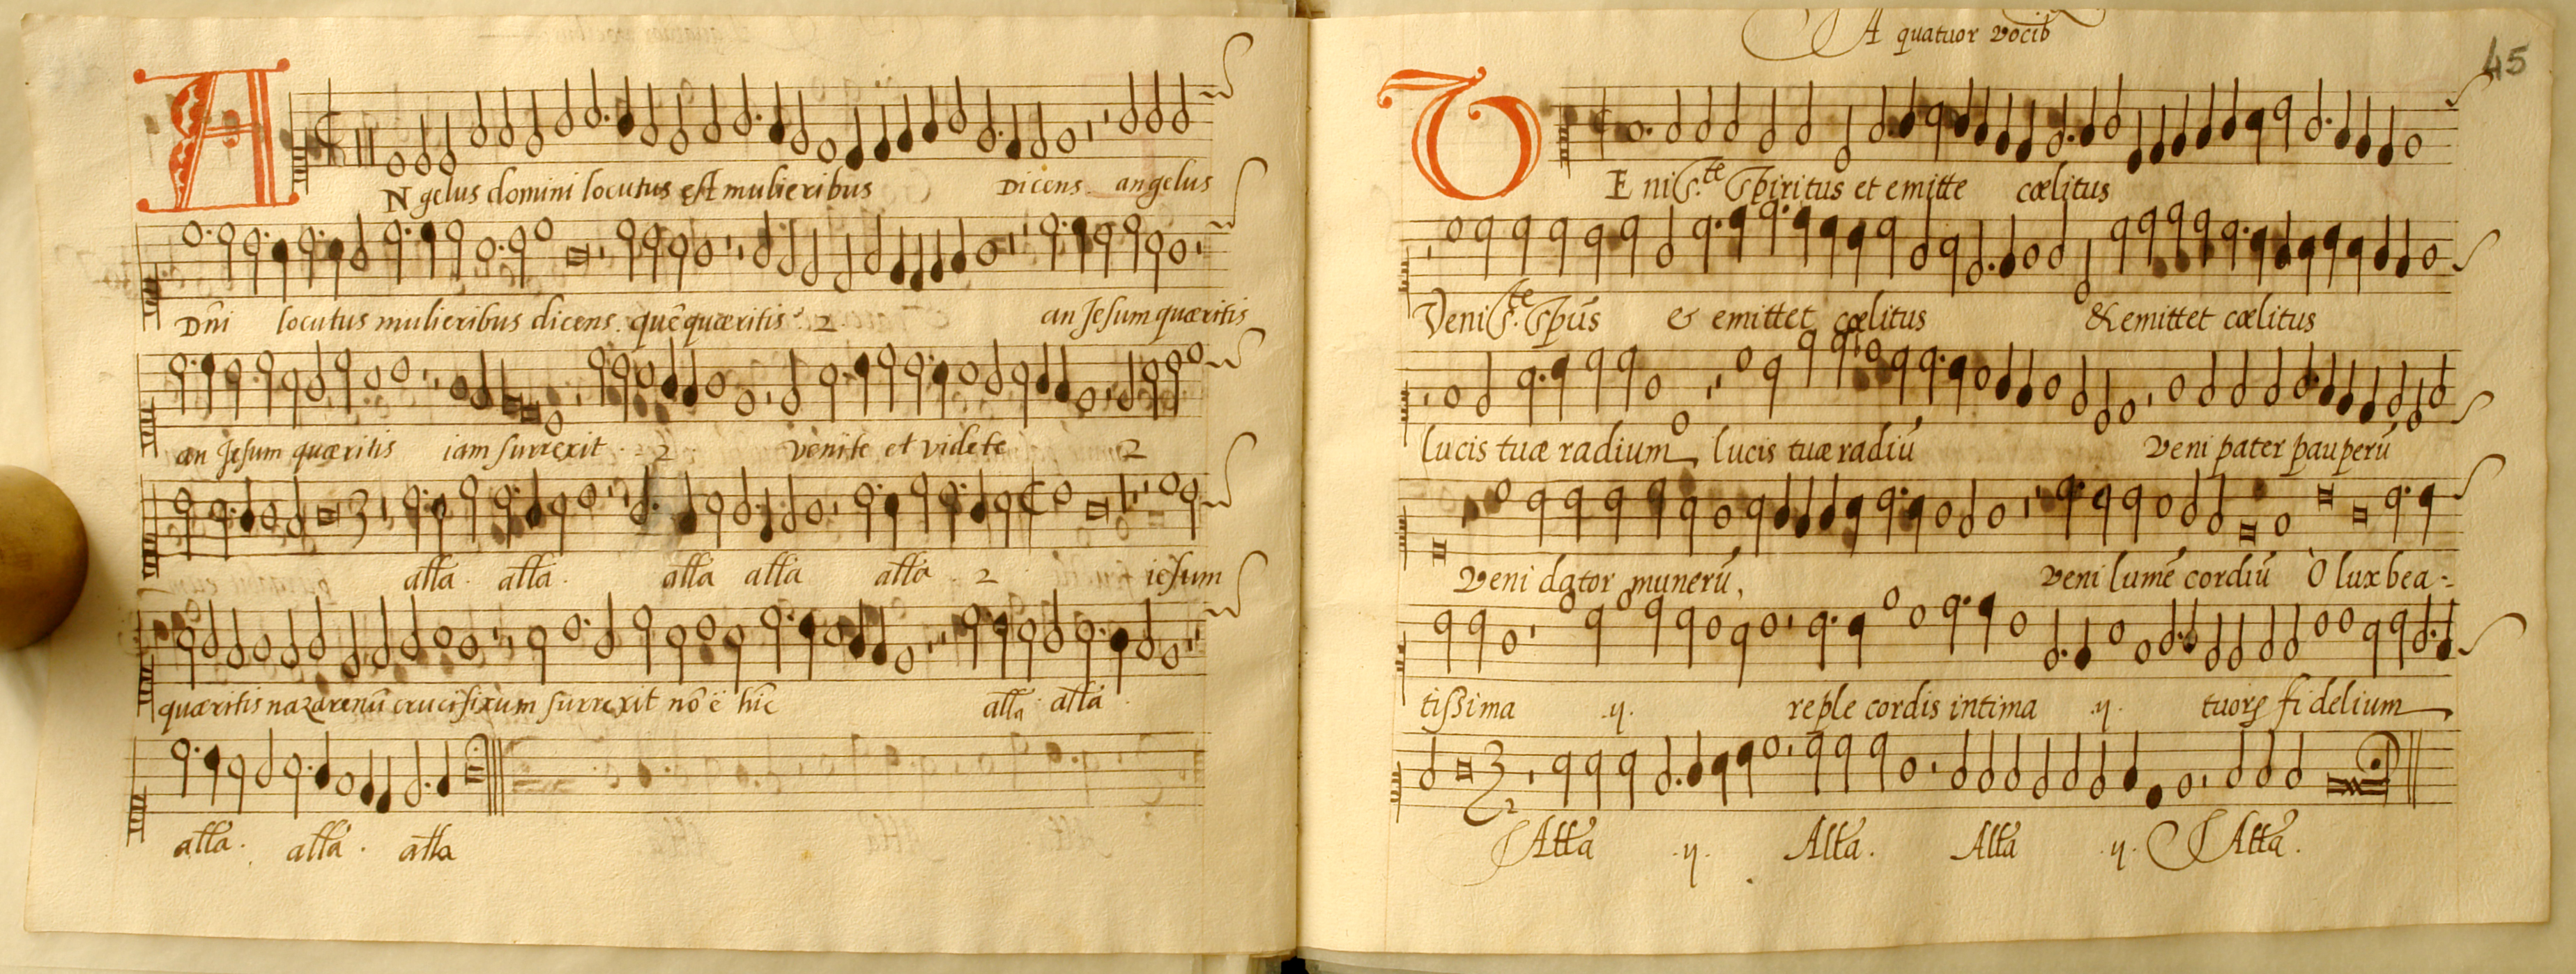 ANgelus domini locutus est mulieribus Dicens. angelus
Dñi locutus mulieribus dicens. quē quæritis. 2. an Jesum quæritis
an Jesum quæritis iam surrexit. 2. venite et videte 2
alla. alla. alla alla alla. 2 iesum
quæritis nazarenū crucifixum surrexit nō ē hic alla alla.
alla. alla. alla
A quatuor vocib
45
VEni S.te Spiritus et emitte cælitus
Veni S.te Spūs & emittet cælitus & emittet cælitus
lucis tuæ radium, lucis tuæ radiū Veni pater pauperū
Veni dator munerū, Veni lumē cordiū O lux bea-
tissima .ij. reple cordis intima .ij. tuorꝝ fidelium
Alla .ij. Alla. Alla .ij. Alla.